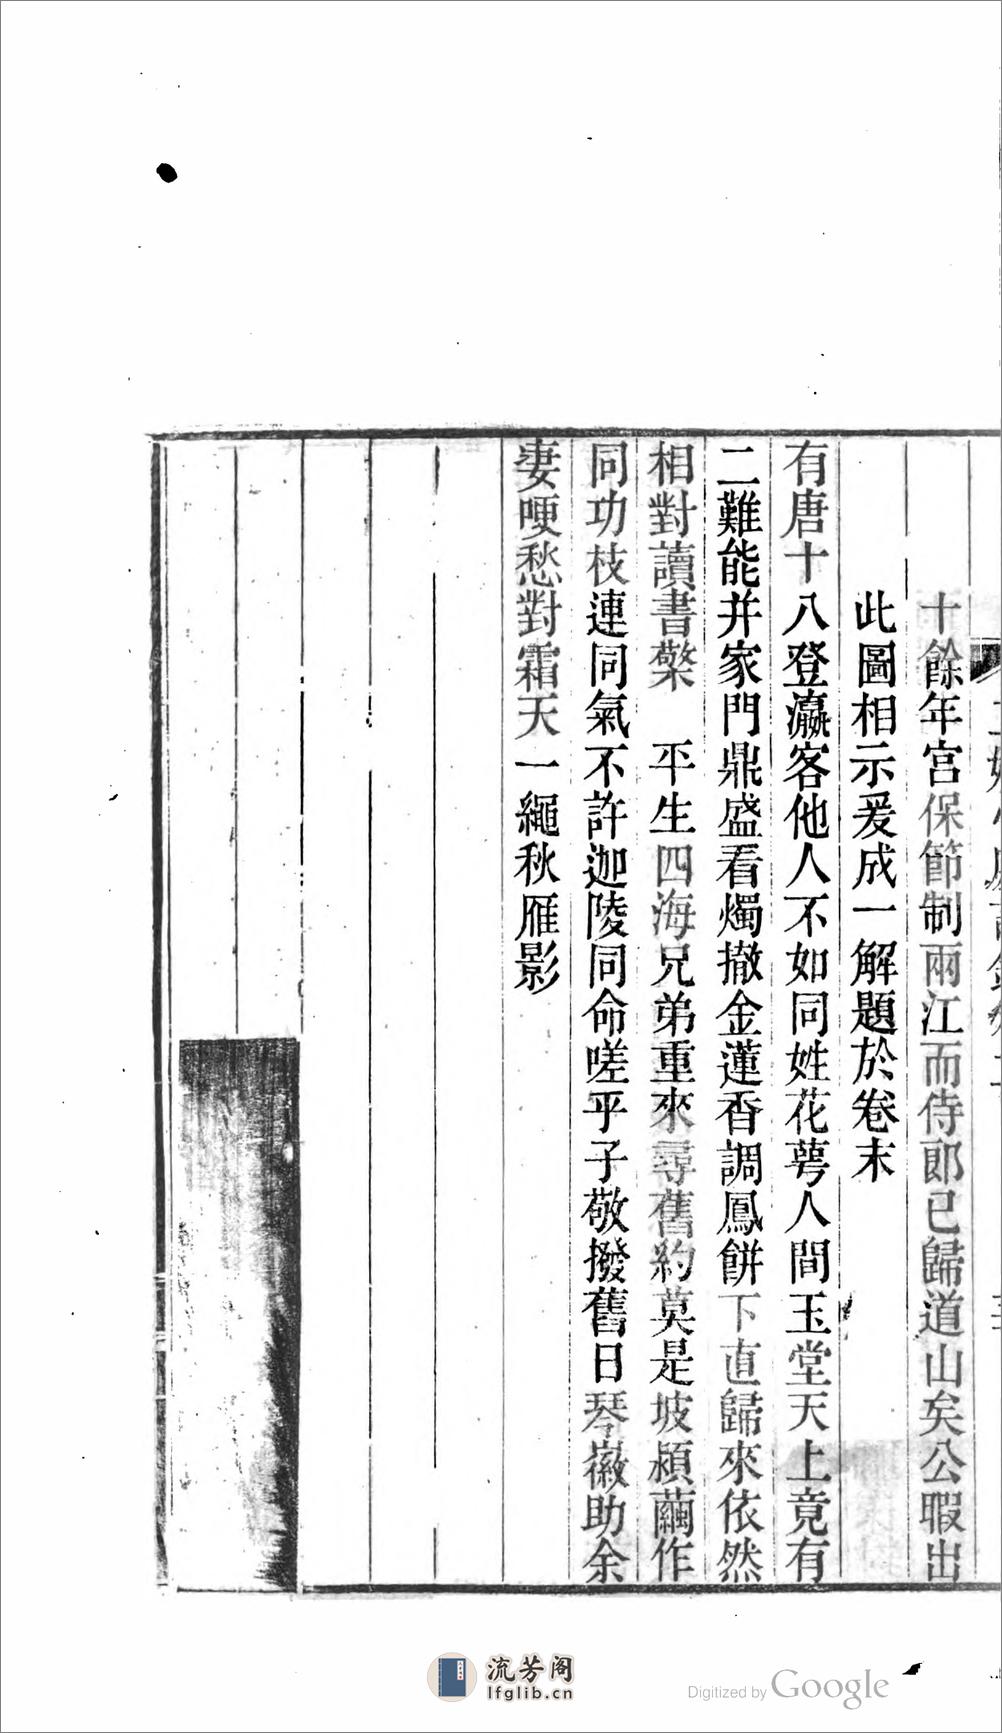 十餘年宫保節制兩江而侍郎已歸道山矣公暇出
此圖相示爰成一解題於卷末
有唐十八登瀛客他人不如同姓花萼人間玉堂天上竟有
二難能并家門鼎盛看燭撤金蓮香調鳳餅下直歸來依然
相對讀書檠　平生四海兄弟重來尋舊約莫是坡潁繭作
同功枝連同氣不許迦陵同命嗟乎子敬撥舊日琴徽助余
妻哽愁對霜天一繩秋雁影
流芳阁
lfglib.cn
Digitized by Google